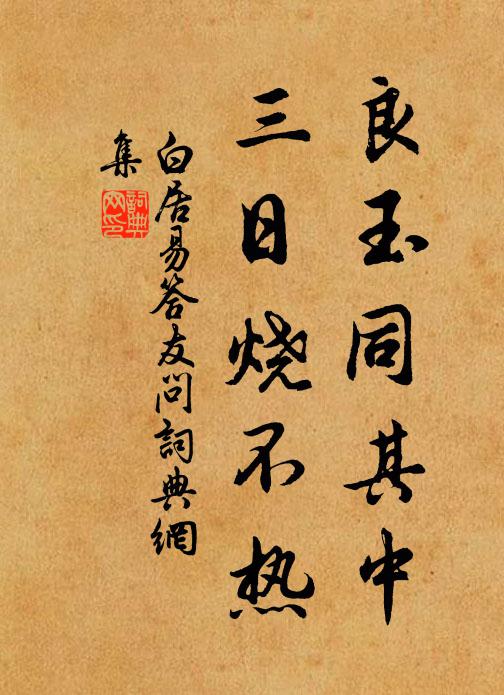 良玉同其中
三日烧不热
白居易答友问詞典網
集
詞典
网印